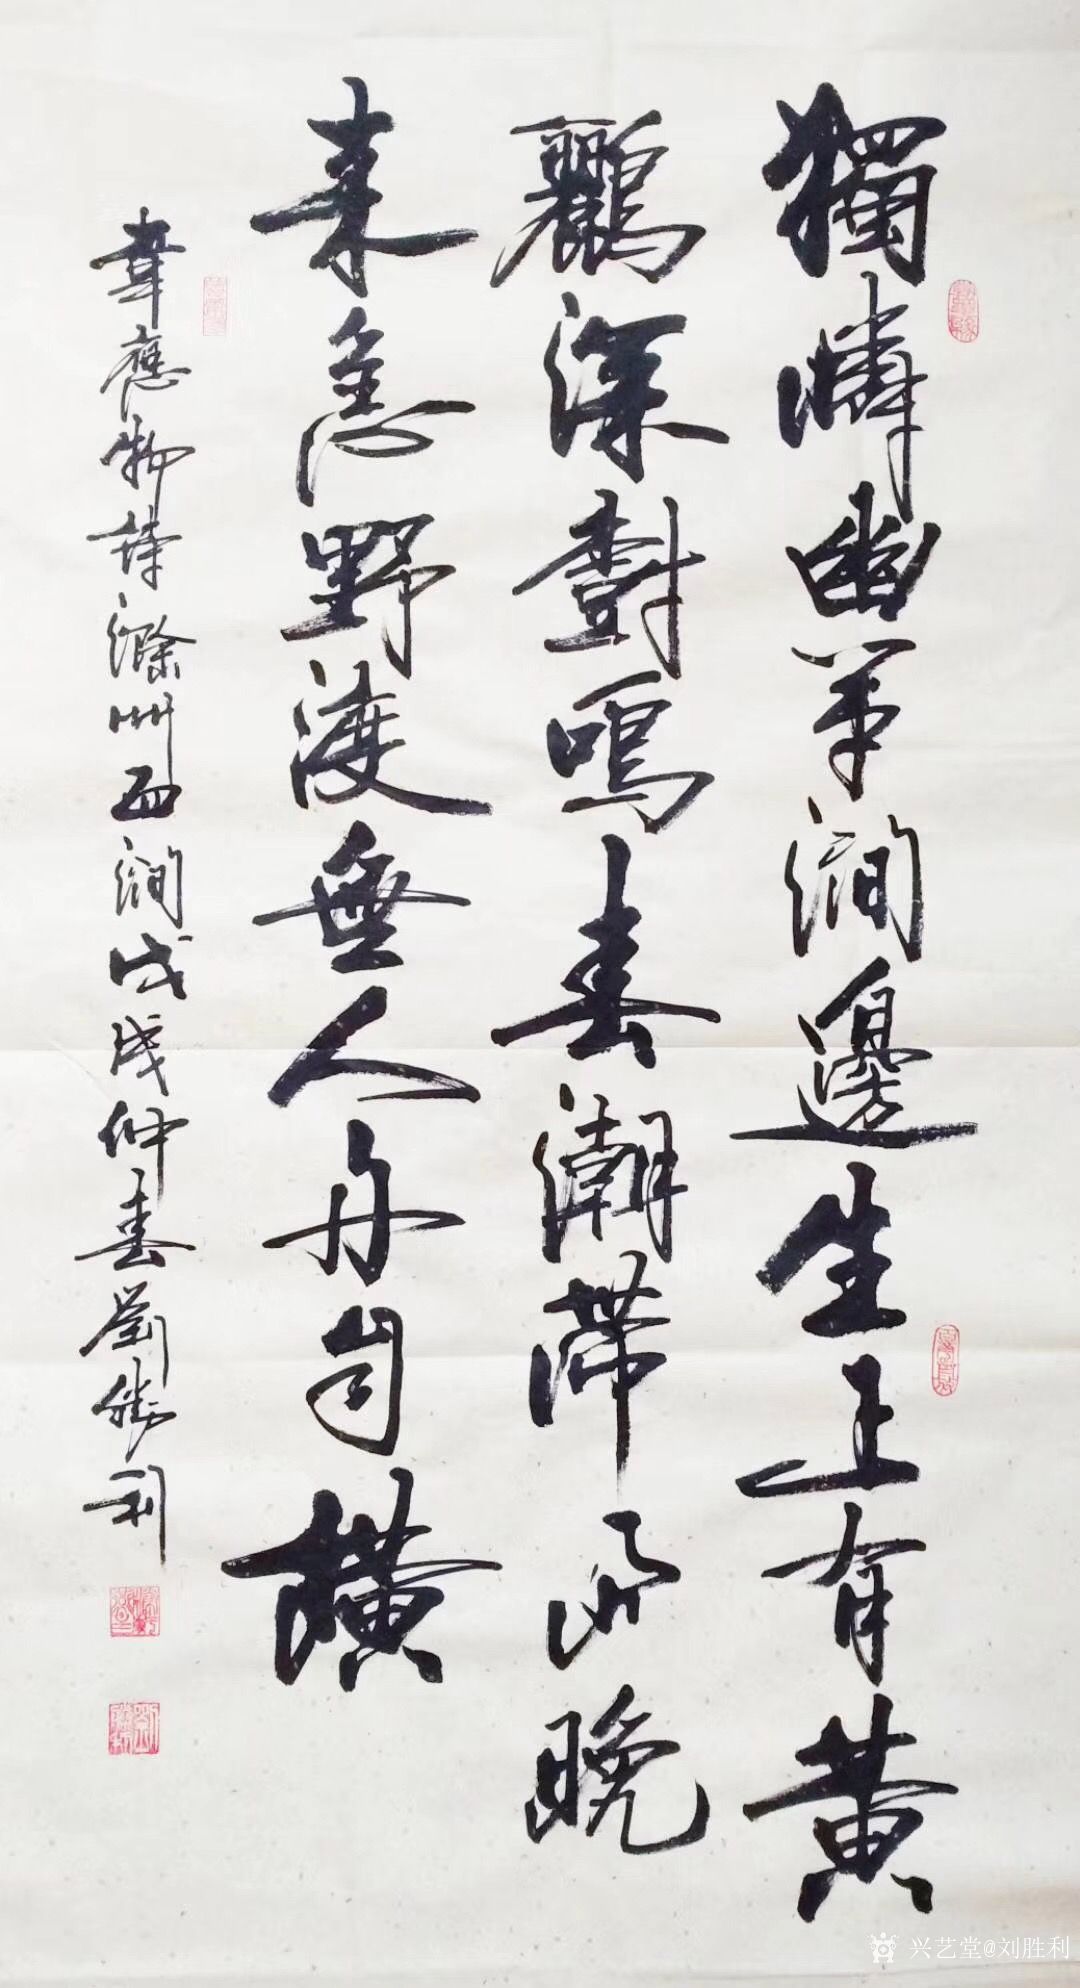 獨憐幽草澗邊生上有黄
鸝深樹鳴春潮帶雨晚
来急野渡無人舟自橫
韋應物詩滁州西澗戊戌仲春劉勝利
兴艺堂@刘胜利